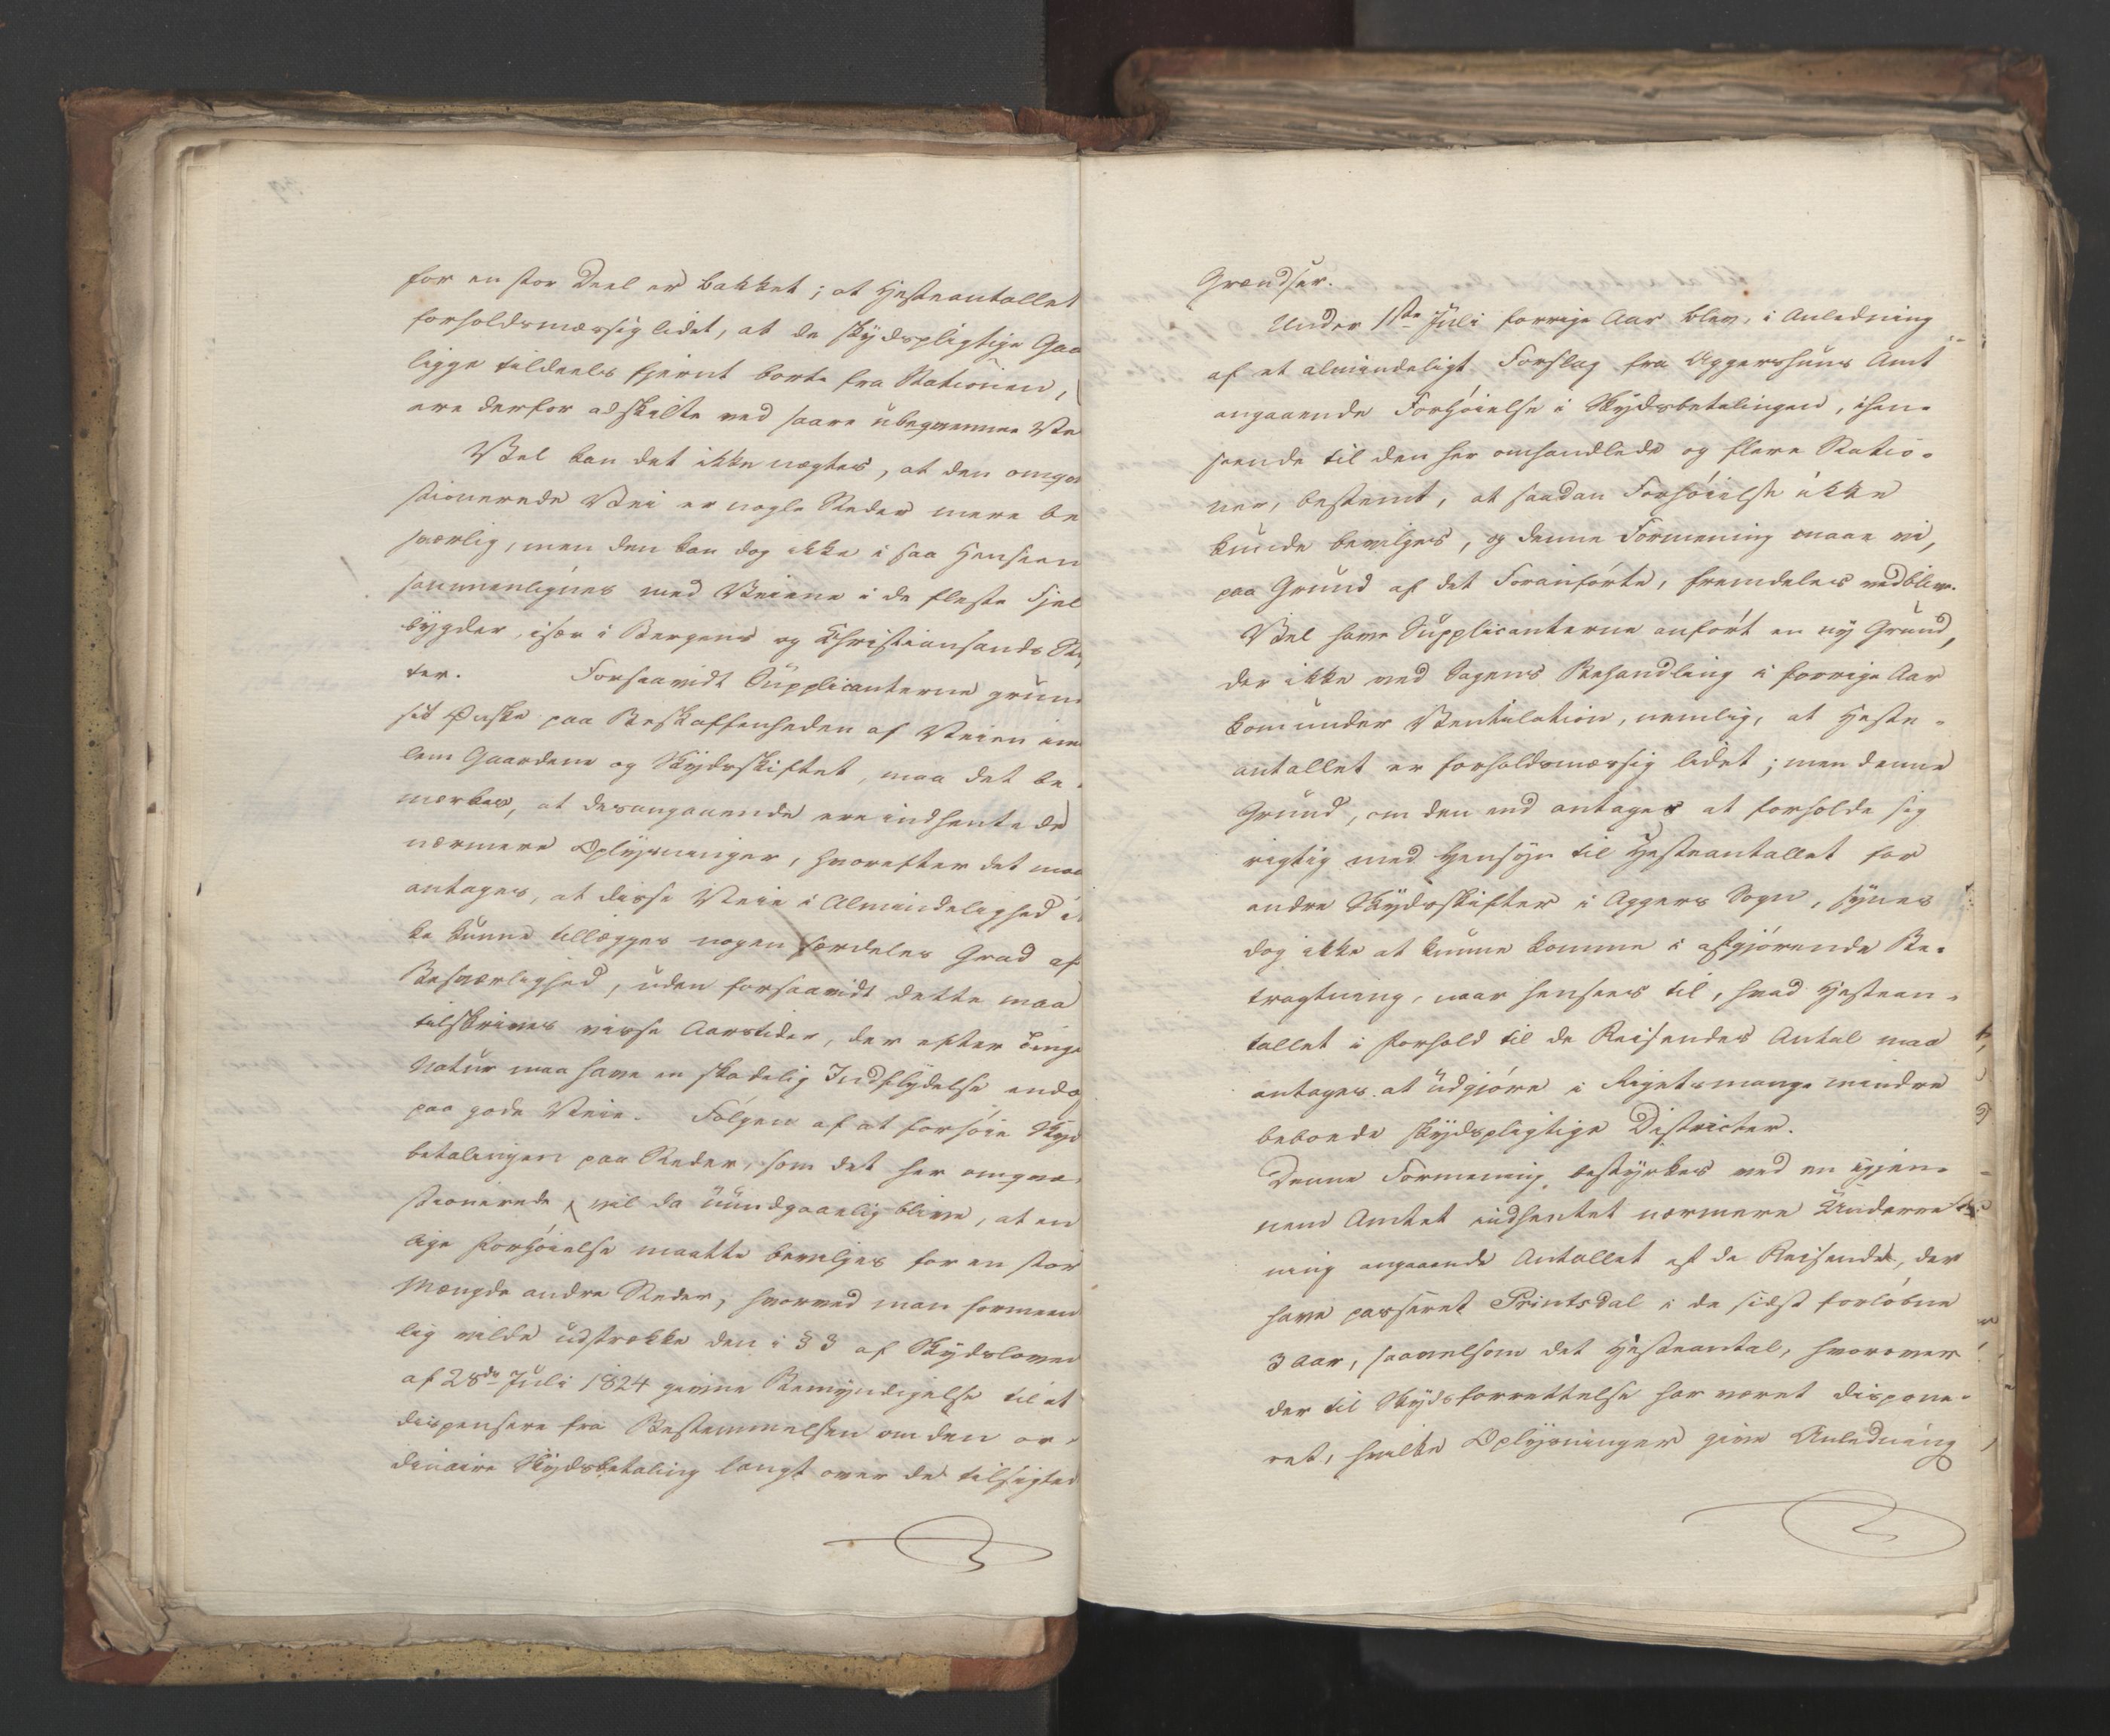 for en stor Deel er bakket; at Hesteantallet
forholdsmæssig lidet, at de skydspligtige Gaa
ligge tildeels fjernt borte fra Stationen,
ere derfor adskilte ved saare ubeqvemme Ve
Vel kan det ikke nægtes, at den omqve
stionerede Vei er nogle Steder mere be
sværlig, men den kan dog ikke i saa Henseen
sammenlignes med Veiene i de fleste Fjel
bygder, især i Bergens og Christiansands Stif
ter. Forsaavidt Supplicanterne grun
sit Ønske paa Beskaffenheden af Veien im
lem Gaardene og Skydsskiftet, maa det be-
mærkes, at desangaaende ere indhentede
nærmere Oplysninger, hvorefter det maa
antages, at disse Veie i Almindelighed ik
ke kunne tillægges nogen særdeles Grad af
Besværlighed, uden forsaavidt dette maa
tilskrives visse Aarstider, der efter Tinge
Natur maa have en skadelig Indflydelse endog
paa gode Veie. Følgen af at forhøie Skyds
betalingen paa Steder, som det her omqve-
stionerede, vil da uundgaaelig blive, at en
lige Forhøielse maatte bevilges for en stor
Mængde andre Steder, hvorved man formeen
lig vilde udstrække den i § 3 af Skydsloven
af 28de Juli 1824 givne Bemyndigelse til at
dispensere fra Bestemmelsen om den or-
dinaire Skydsbetaling langt over de tilsigted
Grændser.
Under 11te Juli forrige Aar blev, i Anledning
af et almindeligt Forslag fra Aggershuus Amt
angaaende Forhøielse i Skydsbetalingen, ihen-
seende til den her omhandlede og flere Statio-
ner, bestemt, at saadan Forhøielse ikke
kunde bevilges, og denne Formening maae vi,
paa Grund af det Foranførte, fremdeles vedblive.
Vel have Supplicanterne anført en ny Grund,
der ikke ved Sagens Behandling i forrige Aar
kom under Ventilation, nemlig, at Heste-
antallet er forholdsmæssig lidet; men denne
Grund, om den end antages at forholde sig
rigtig med Hensyn til Hesteantallet for
andre Skydsskifter i Aggers Sogn, synes
dog ikke at kunne komme i afgjørende Be-
tragtning, naar hensees til, hvad Hestean-
tallet i Forhold til de Reisendes Antal maa
antages at udgjøre i Rigets mange mindre
beboede skydspligtige Districter.
Denne Formening bestyrkes ved en igjen-
nem Amtet indhentet nærmere Underret-
ning angaaende Antallet af de Reisende, der
have passeret Printsdal i de sidst forløbne
3 Aar, saavelsom det Hesteantal, hvorover
der til Skydsforrettelse har været dispone-
ret, hvilke Oplysninger give Anledning